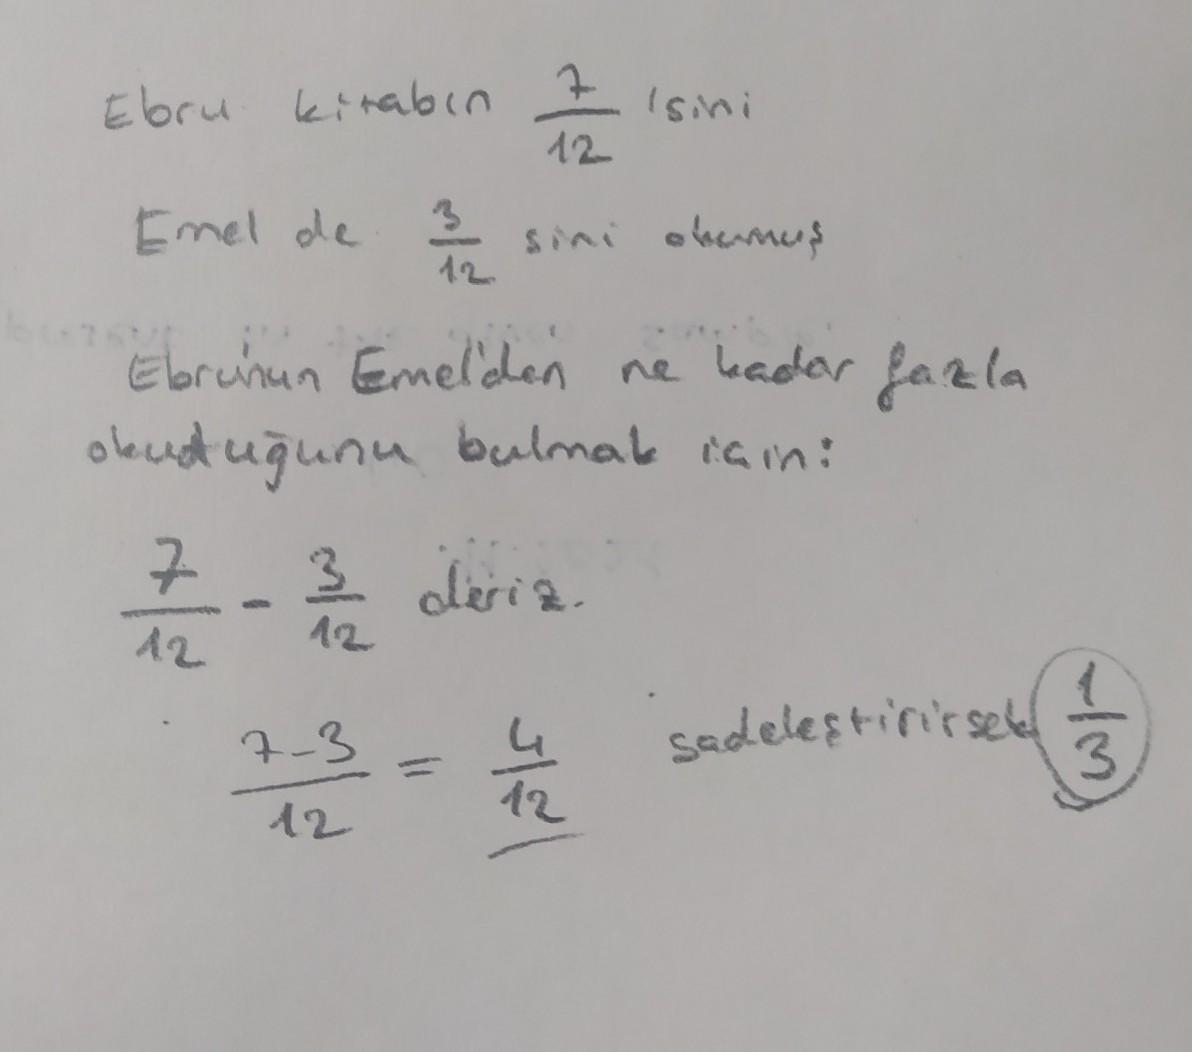 Ebru kitabın 7/12 'sini
Emel de 3/12 sini okumuş
Ebru'nun Emel'den ne kadar fazla
okuduğunu bulmak için:
7/12 - 3/12 deriz.
7-3/12 = 4/12 sadeleştirirsek 1/3